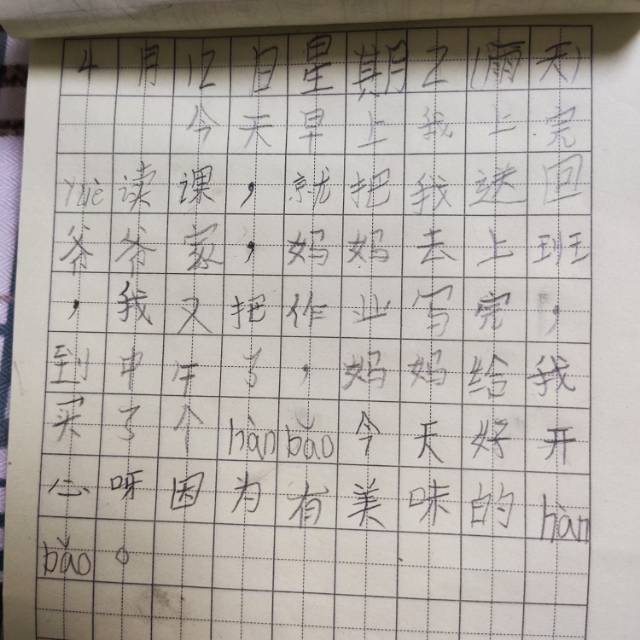 4月12日星期2(雨天)
今天早上我上完
yuè读课，就把我送回
爷爷家，妈妈去上班
，我又把作业写完，
到中午了，妈妈给我
买了个hànbǎo今天好开
心呀因为有美味的hàn
bǎo。